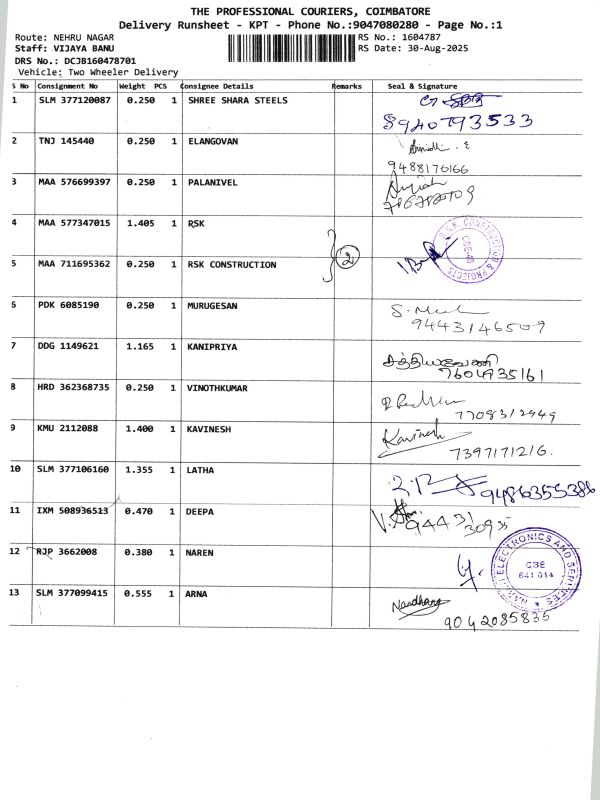 THE PROFESSIONAL COURIERS, COIMBATORE
Delivery Runsheet - KPT - Phone No.:9047080280 - Page No.:1
Route: NEHRU NAGAR RS No.: 1604787
Staff: VIJAYA BANU RS Date: 30-Aug-2025
DRS No.: DCJB160478701
Vehicle: Two Wheeler Delivery
S No Consignment No Weight PCS Consignee Details Remarks Seal & Signature
1 SLM 377120087 0.250 1 SHREE SHARA STEELS
8940793533
2 TNJ 145440 0.250 1 ELANGOVAN
9488176166
3 MAA 576699397 0.250 1 PALANIVEL
4 MAA 577347015 1.405 1 RSK
2
5 MAA 711695362 0.250 1 RSK CONSTRUCTION
R.S.K. CONSTRUCTION & PROJECTS
6 PDK 6085190 0.250 1 MURUGESAN
9443146509
7 DDG 1149621 1.165 1 KANIPRIYA சத்தியவேணி
7604935161
8 HRD 362368735 0.250 1 VINOTHKUMAR
7708312949
9 KMU 2112088 1.400 1 KAVINESH Kavinesh
7397171216.
10 SLM 377106160 1.355 1 LATHA
9486355386
11 IXM 508936513 0.470 1 DEEPA
94431
30935
12 RJP 3662008 0.380 1 NAREN
ELECTRONICS AND SERVICES
CBE
641 014
13 SLM 377099415 0.555 1 ARNA Nandhana
9042085835